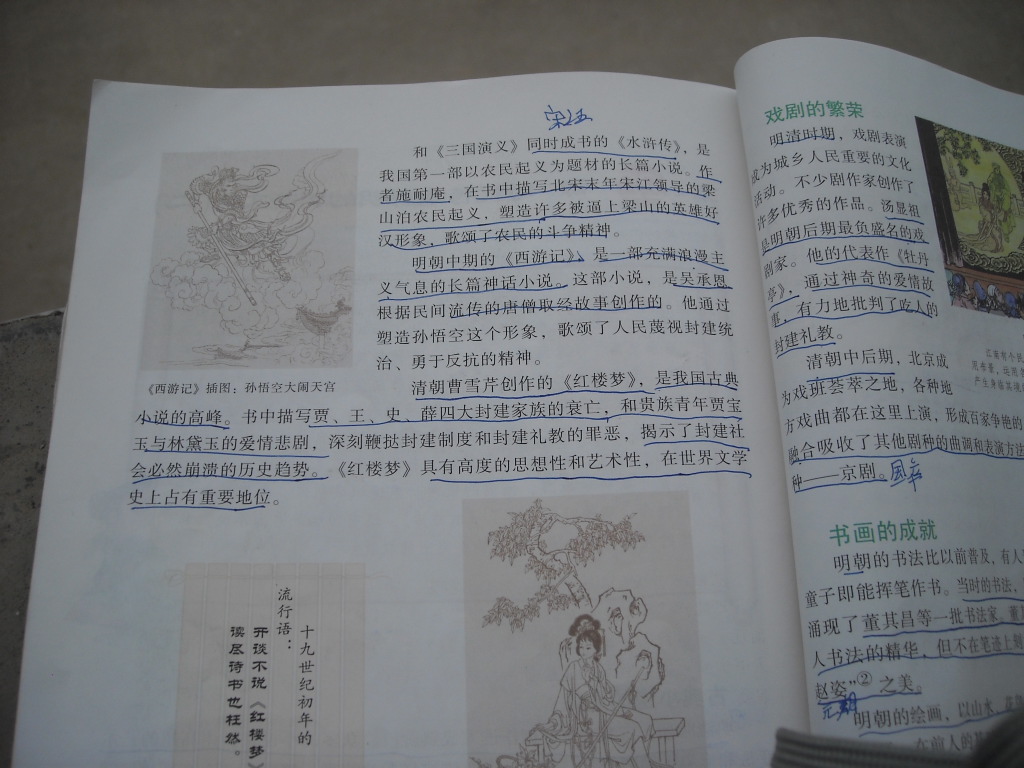 和《三国演义》同时成书的《水浒传》，是
我国第一部以农民起义为题材的长篇小说。作
者施耐庵，在书中描写北宋末年宋江领导的梁
山泊农民起义，塑造许多被逼上梁山的英雄好
汉形象，歌颂了农民的斗争精神。
明朝中期的《西游记》，是一部充满浪漫主
义气息的长篇神话小说。这部小说，是吴承恩
根据民间流传的唐僧取经故事创作的。他通过
塑造孙悟空这个形象，歌颂了人民蔑视封建统
治、勇于反抗的精神。
《西游记》插图：孙悟空大闹天宫
清朝曹雪芹创作的《红楼梦》，是我国古典
小说的高峰。书中描写贾、王、史、薛四大封建家族的衰亡，和贵族青年贾宝
玉与林黛玉的爱情悲剧，深刻鞭挞封建制度和封建礼教的罪恶，揭示了封建社
会必然崩溃的历史趋势。《红楼梦》具有高度的思想性和艺术性，在世界文学
史上占有重要地位。
十九世纪初年的
流行语：
开谈不说《红楼梦》
读尽诗书也枉然。
戏剧的繁荣
明清时期，戏剧表演
成为城乡人民重要的文化
活动。不少剧作家创作了
许多优秀的作品。汤显祖
是明朝后期最负盛名的戏
剧家。他的代表作《牡丹
亭》，通过神奇的爱情故
事，有力地批判了吃人的
封建礼教。
清朝中后期，北京成
为戏班荟萃之地，各种地
方戏曲都在这里上演，形成百家争艳的
融合吸收了其他剧种的曲调和表演方法
种——京剧。
书画的成就
明朝的书法比以前普及，有人
童子即能挥笔作书。当时的书法，
涌现了董其昌等一批书法家，董
人书法的精华，但不在笔迹上刻
赵姿”② 之美。
元朝
明朝的绘画，以山水、花
在前人的基